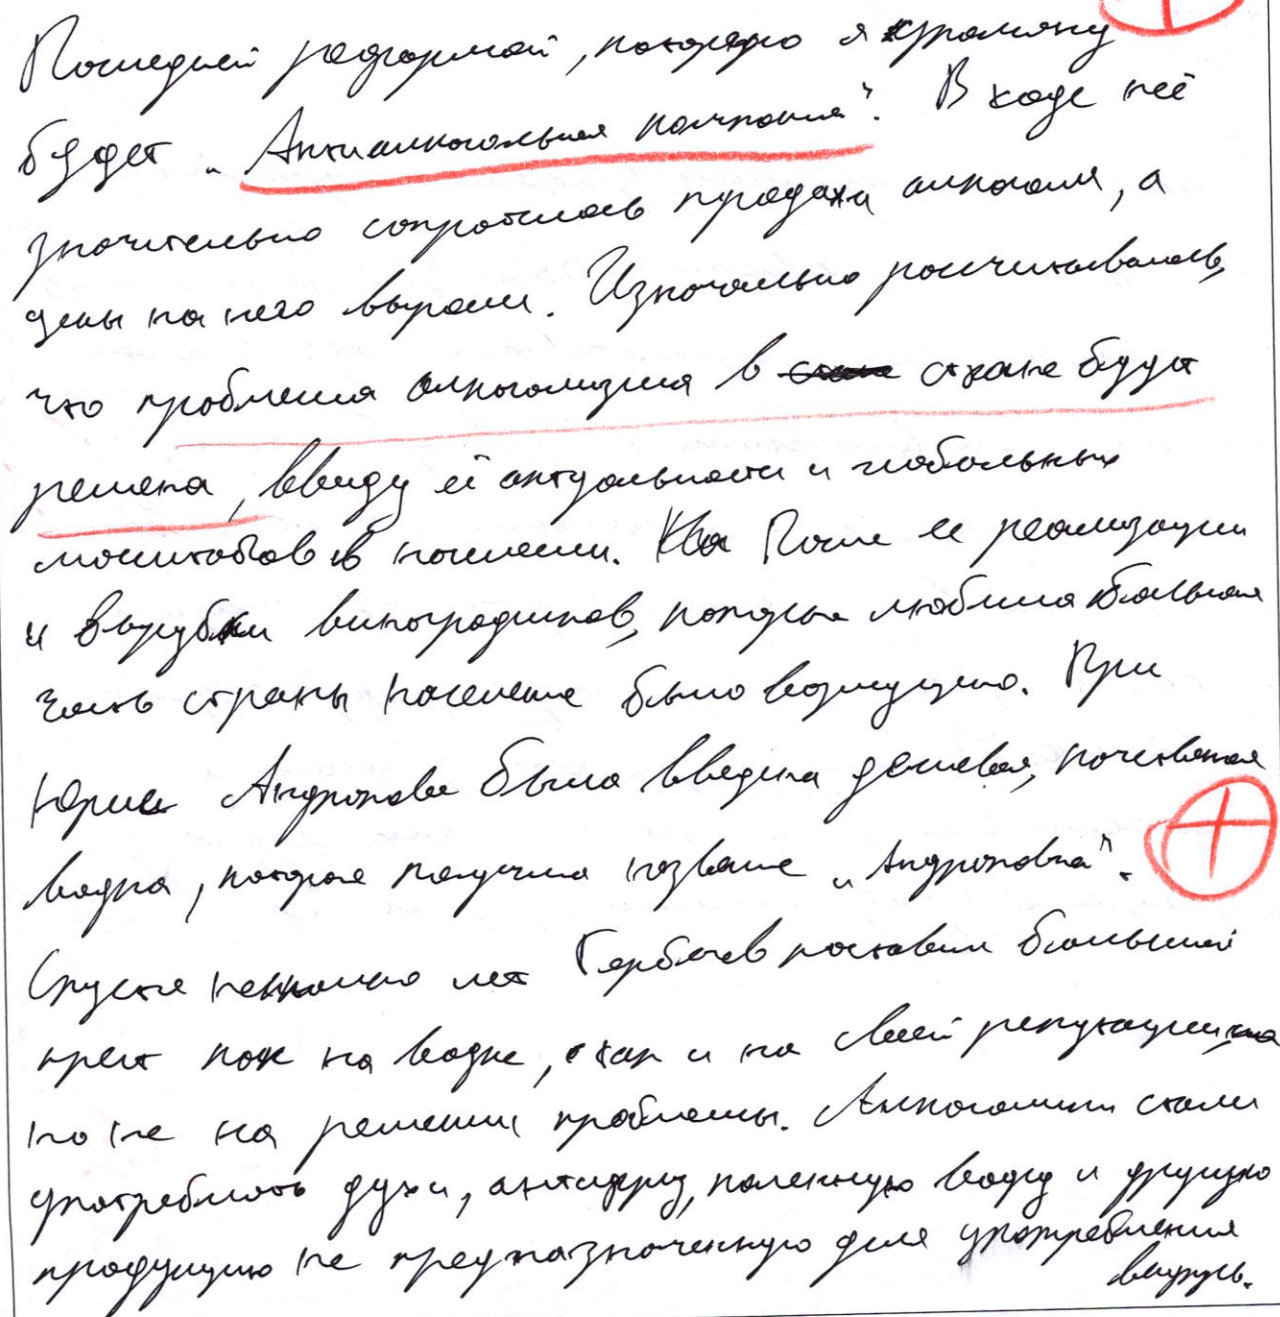 Последней реформой, которую я упомяну
будет „Антиалкогольная кампания". В ходе неё
значительно сократилась продажа алкоголя, а
цены на него выросли. Изначально рассчитывалось,
что проблема алкоголизма в стране будет
решена, ввиду её актуальности и глобальных
масштабов в населении. После её реализации
и вырубки виноградников, которые любила большая
часть страны население было возмущено. При
Юрие Андропове была введена дешевая, качественная
водка, которая получила название „Андроповка".
Спустя немного лет Горбачёв поставил большой
крест как на водке, так и на своей репутации, но
но не на решении проблемы. Алкоголики стали
употреблять духи, антифриз, паленную водку и другую
продукцию не предназначенную для употребления
внутрь.